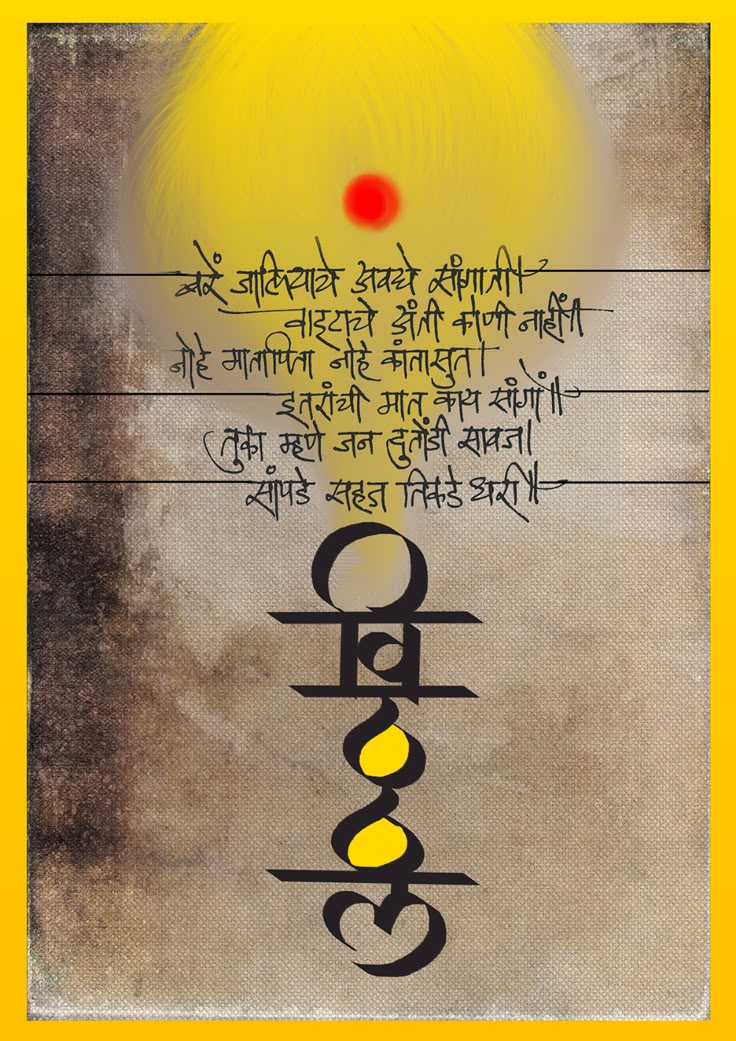 बरें जालियाचे अवघे सांगाती।
वाइटाचे अंती कोणी नाहीं॥
नोहे मातापिता नोहे कांतासुत।
इतरांची मात काय सांगों॥
तुका म्हणे जन दुतोंडी सावज।
सांपडे सहज तिकडे धरी॥
विठ्ठल